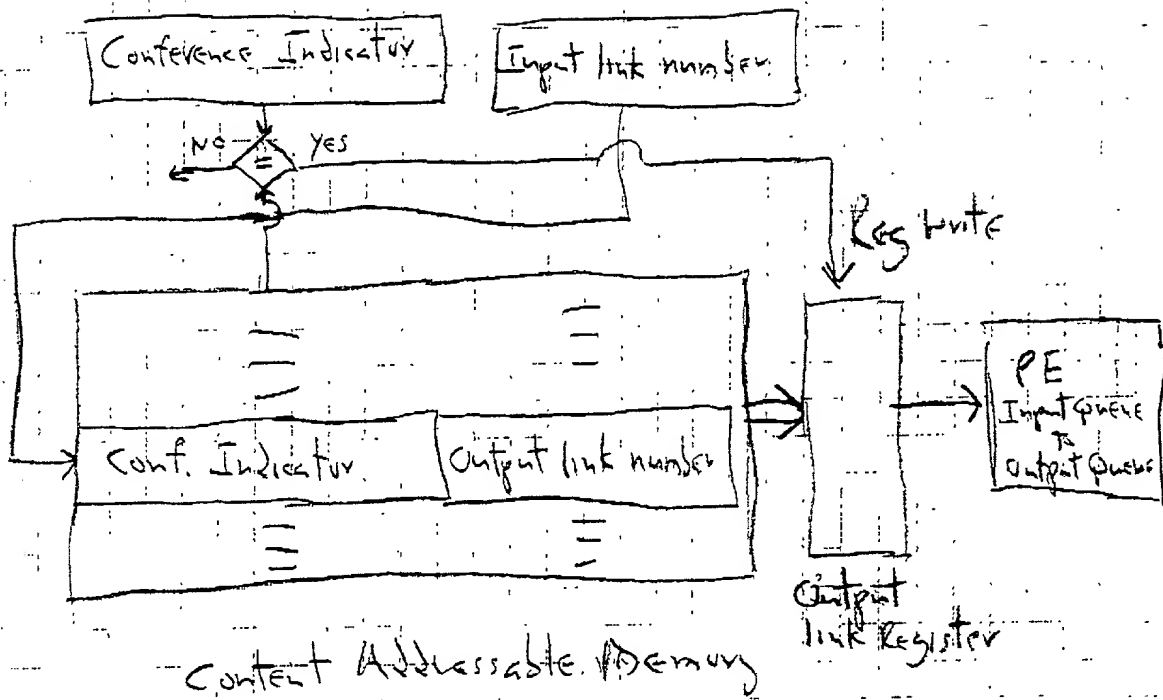 Conference Indicator
Input link number
NO
=
YES
Reg write
Conf. Indicator
Output link number
PE
Input Queue
to
Output Queue
Output
link Register
Content Addressable Memory